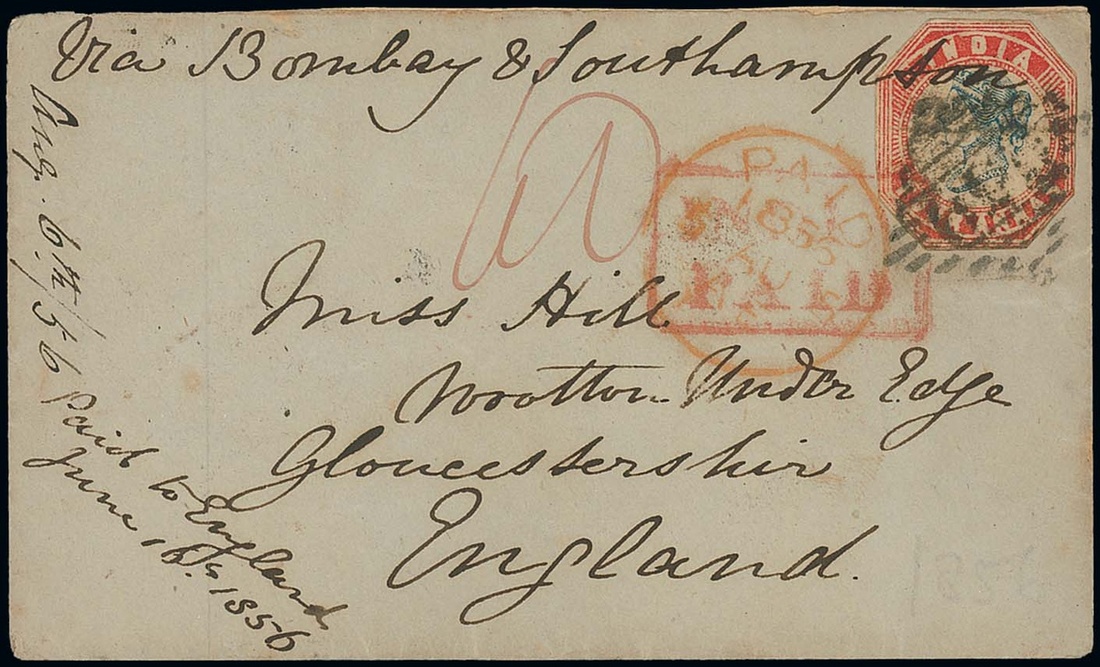 Via Bombay & Southampson
INDIA
PAID
1856
AU
INDIA
PAID
Miss Hill
Wotton Under Edge
Gloucestershir
England.
Aug. 6th/56
Paid to England
June 16th 1856